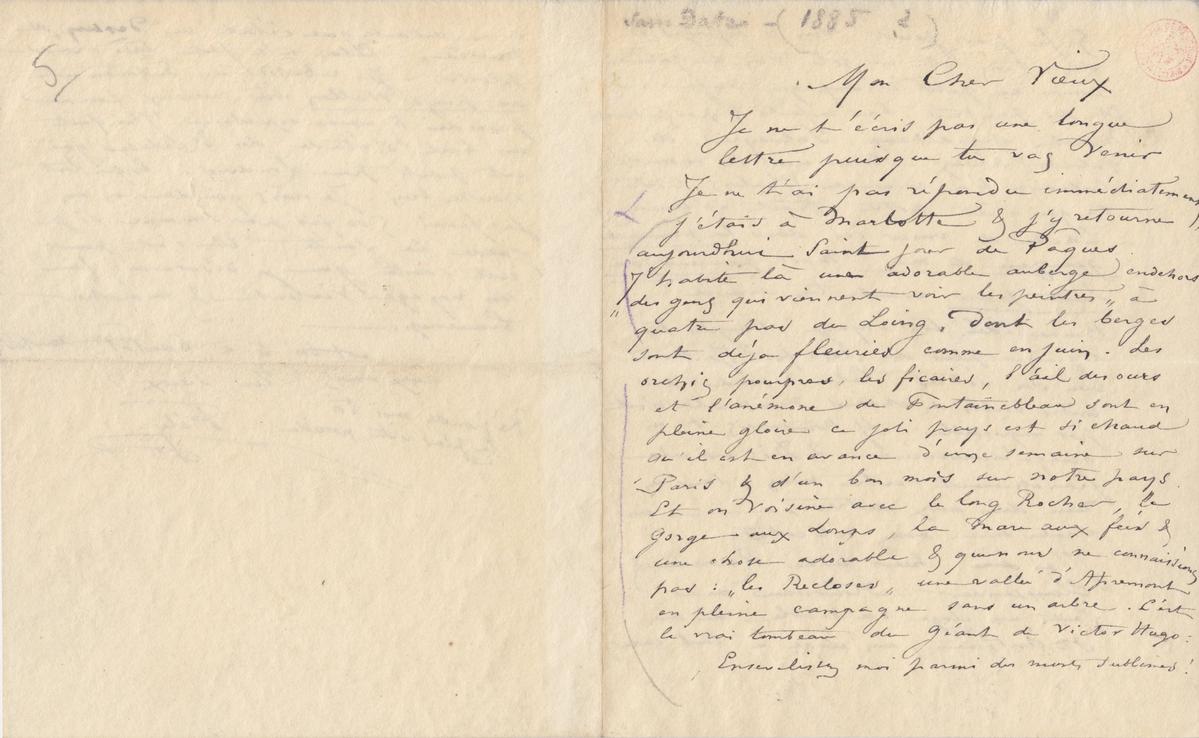 5/
Sans Date - (1885 ?)
Mon Cher Vieux
Je ne t'écris pas une longue
lettre puisque tu vas venir
Je ne t'ai pas répondu immédiatement
j'étais à Marlotte & j'y retourne
aujourdhui Saint Jour de Pâques
J'habite là une adorable auberge endehors
"des gens qui viennent voir les peintres" à
quatre pas du Loing, dont les berges
sont déja fleuries comme en juin. Les
orchis pourpres, les ficaires, l'ail des ours
et l'anémone de Fontainebleau sont en
pleine gloire ce joli pays est si chaud
qu'il est en avance d'une semaine sur
Paris & d'un bon mois sur notre pays.
Et on voisine avec le long Rocher, la
Gorge aux Loups, la Mare aux fées &
une chose adorable & que nous ne connaissions
pas : "les Recloses" une vallée d'Apremont
en pleine campagne sans un arbre. C'est
le vrai tombeau du Géant de Victor Hugo :
Ensevelissez moi parmi des monts sublimes !